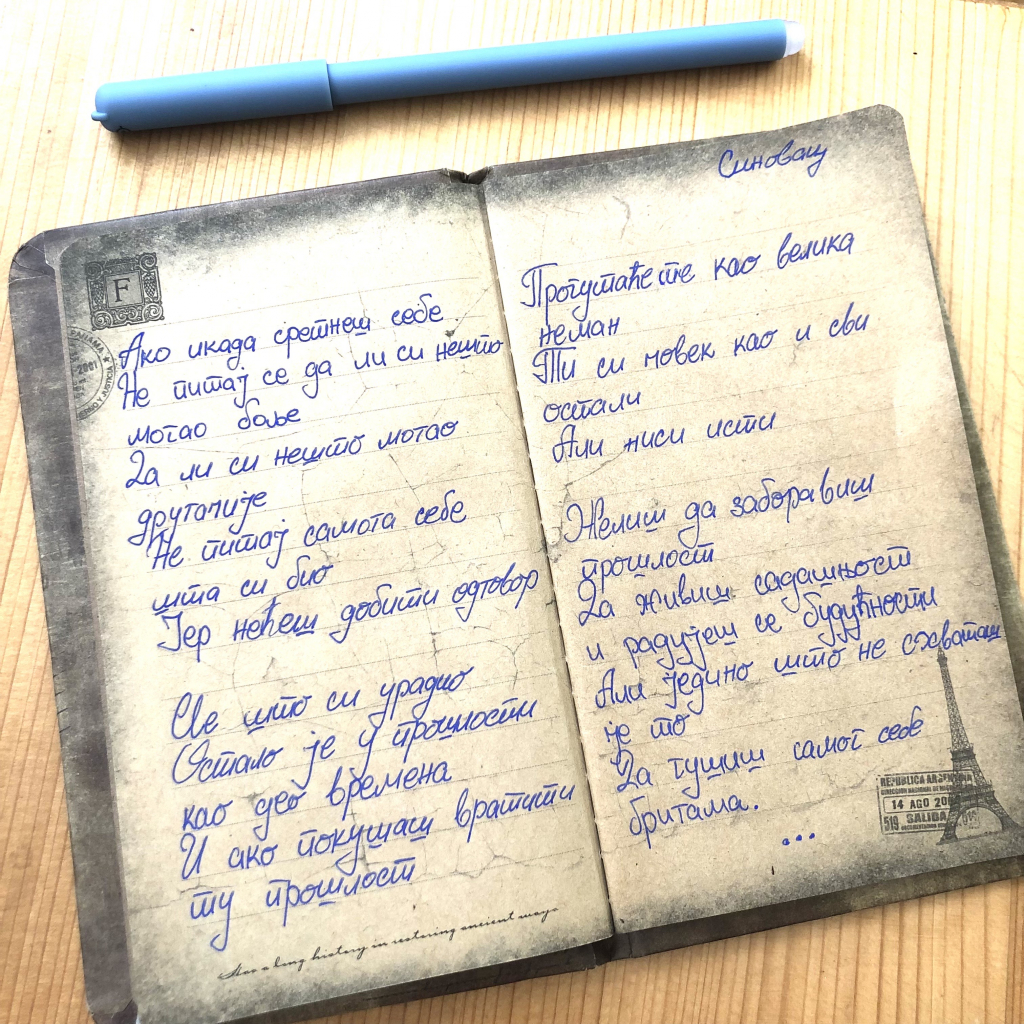 F
2001
Ако икада сретнеш себе
Не питај се да ли си нешто
могао боље
Да ли си нешто могао
другачије
Не питај самога себе
шта си био
Јер нећеш добити одговор
Све што си урадио
Остало је у прошлости
као део времена
И ако покушаш вратити
ту прошлост
Has a long history in restoring ancient ways
Синовац
Прогутаће те као велика
неман
Ти си човек као и сви
остали
Али ниси исти
Желиш да заборавиш
прошлост
Да живиш садашњост
и радујеш се будућности
Али једино што не схваташ
је то
Да гушиш самог себе
бригама.
...
REPUBLICA ARGENTINA
14 AGO
519 SALIDA